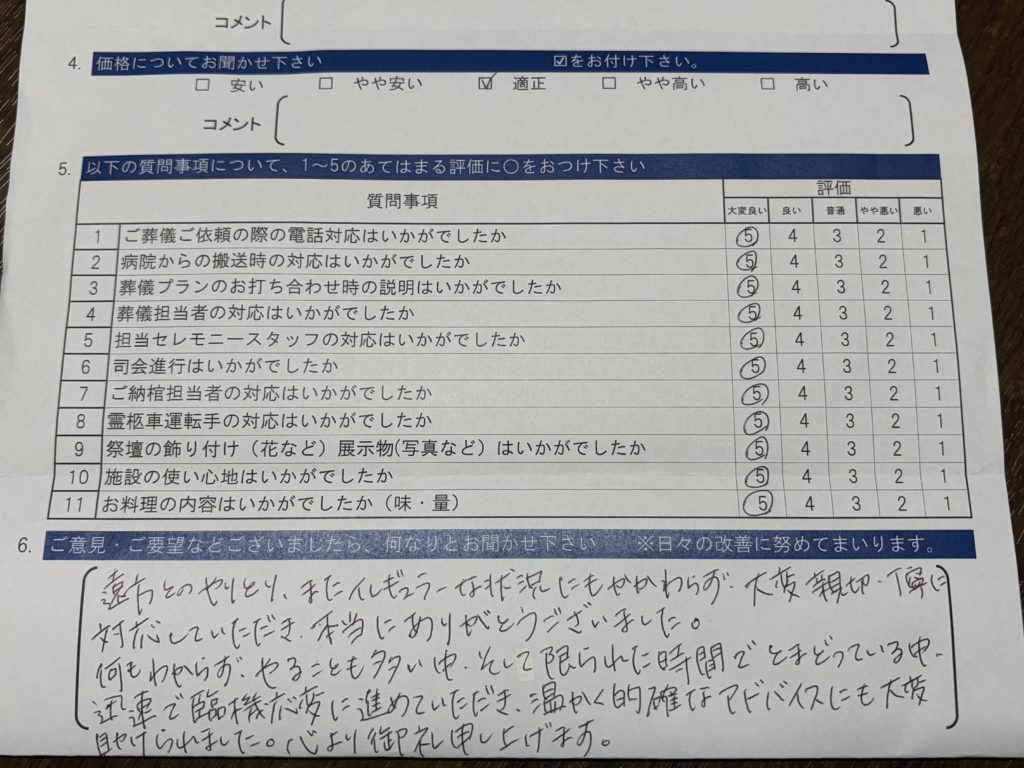 コメント
4. 価格についてお聞かせ下さい ☑をお付け下さい。
☐ 安い ☐ やや安い ☑ 適正 ☐ やや高い ☐ 高い
コメント
5. 以下の質問事項について、1～5のあてはまる評価に○をおつけ下さい
質問事項 評価
大変良い 良い 普通 やや悪い 悪い
1 ご葬儀ご依頼の際の電話対応はいかがでしたか 5 4 3 2 1
2 病院からの搬送時の対応はいかがでしたか 5 4 3 2 1
3 葬儀プランのお打ち合わせ時の説明はいかがでしたか 5 4 3 2 1
4 葬儀担当者の対応はいかがでしたか 5 4 3 2 1
5 担当セレモニースタッフの対応はいかがでしたか 5 4 3 2 1
6 司会進行はいかがでしたか 5 4 3 2 1
7 ご納棺担当者の対応はいかがでしたか 5 4 3 2 1
8 霊柩車運転手の対応はいかがでしたか 5 4 3 2 1
9 祭壇の飾り付け（花など）展示物(写真など）はいかがでしたか 5 4 3 2 1
10 施設の使い心地はいかがでしたか 5 4 3 2 1
11 お料理の内容はいかがでしたか（味・量） 5 4 3 2 1
6. ご意見・ご要望などございましたら、何なりとお聞かせ下さい ※日々の改善に努めてまいります。
遠方とのやりとり、またイレギュラーな状況にもかかわらず、大変親切・丁寧に
対応していただき、本当にありがとうございました。
何もわからず、やることも多い中、そして限られた時間でとまどっている中、
迅速で臨機応変に進めていただき、温かく的確なアドバイスにも大変
助けられました。心より御礼申し上げます。